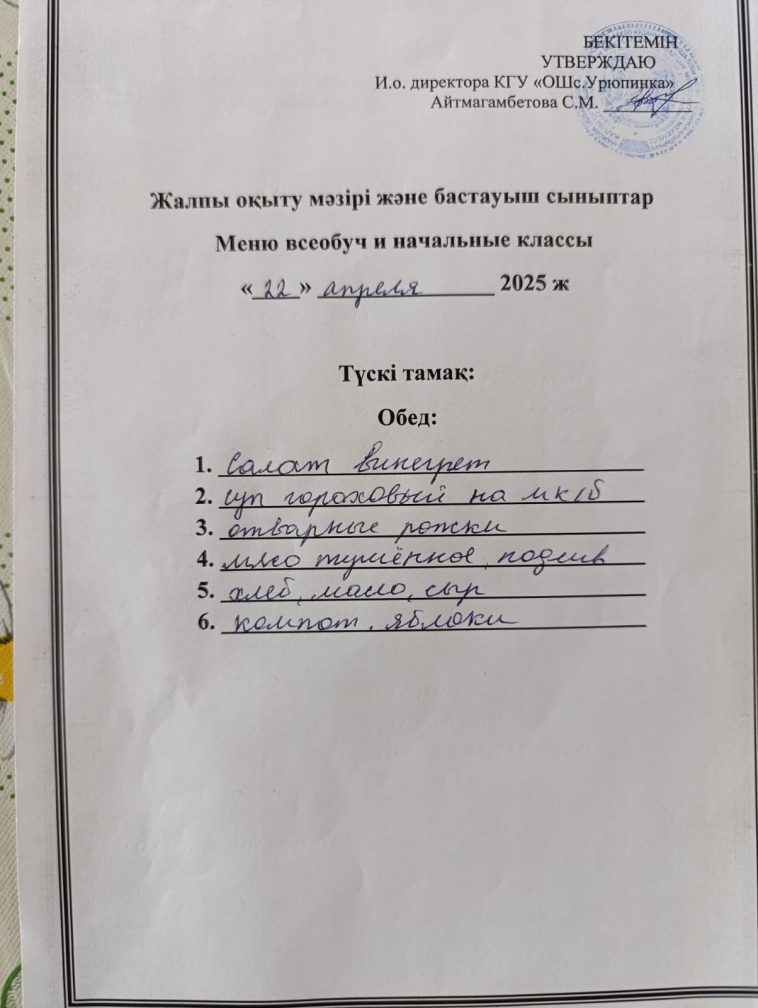 БЕКІТЕМІН
УТВЕРЖДАЮ
И.о. директора КГУ «ОШс.Урюпинка»
Айтмагамбетова С.М.
Жалпы оқыту мәзірі және бастауыш сыныптар
Меню всеобуч и начальные классы
«22» апреля 2025 ж
Түскі тамақ:
Обед:
1. Салат винегрет
2. суп гороховый на мк/б
3. отварные рожки
4. мясо тушённое, подлив
5. хлеб, масло, сыр
6. компот, яблоки